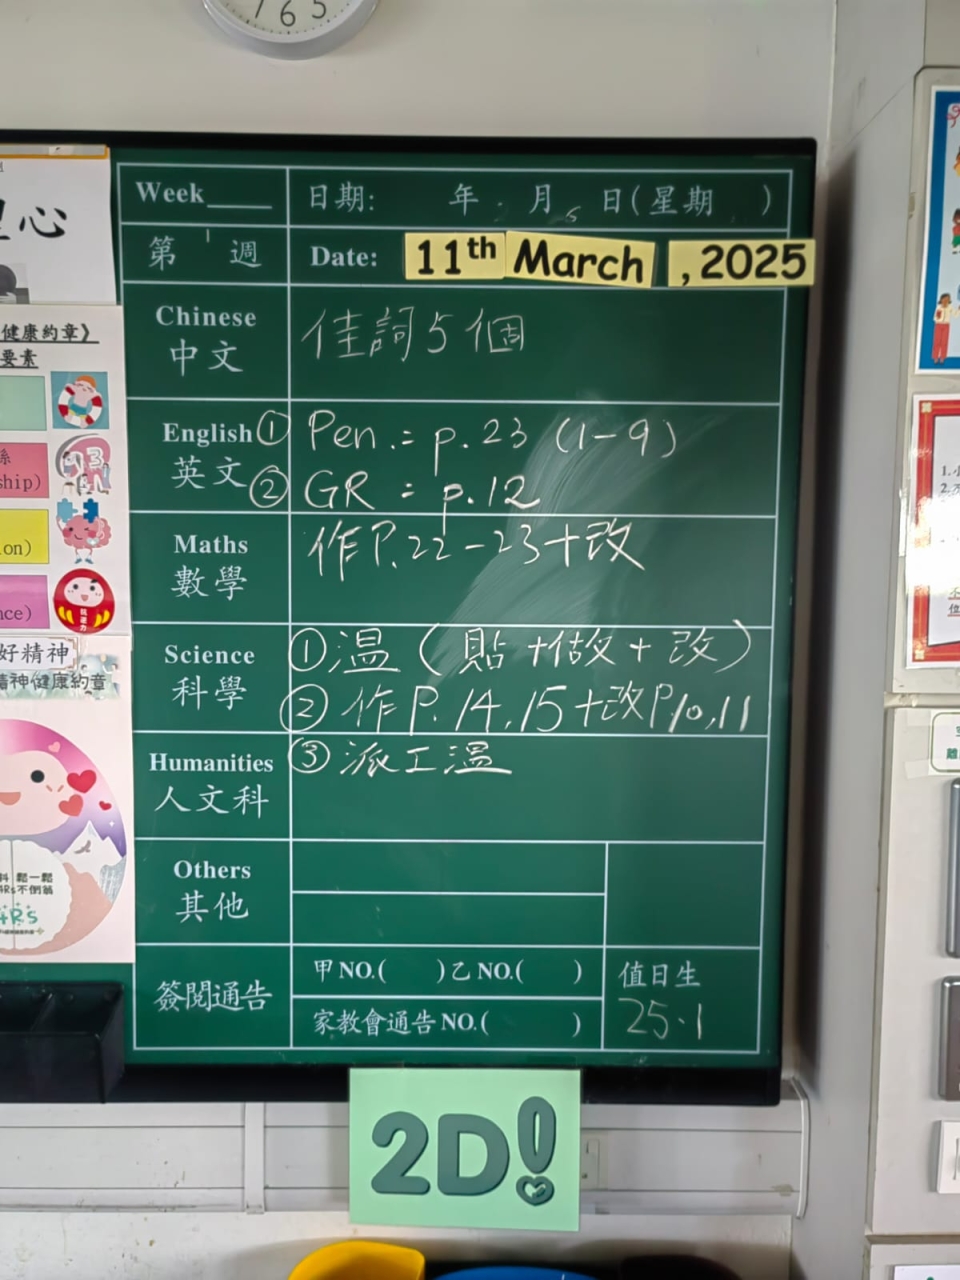 7 6 5
心
Week____ 日期: 年 月 日(星期 )
第 週 Date: 11th March , 2025
健康約章》
要素
Chinese
中文
佳詞5個
English ① Pen.: p.23 (1-9)
英文 ② GR : p.12
Maths
數學
作P.22-23+改
Science
科學
① 溫 (貼+做+改)
② 作P.14,15+改P.10,11
ship)
on)
nce)
好精神
精神健康約章
Humanities
人文科
③ 派工溫
Others
其他
鬆一鬆
4Rs不倒翁
4R's
簽閱通告
甲NO.( )乙NO.( )
家教會通告NO.( )
值日生
25.1
2D!